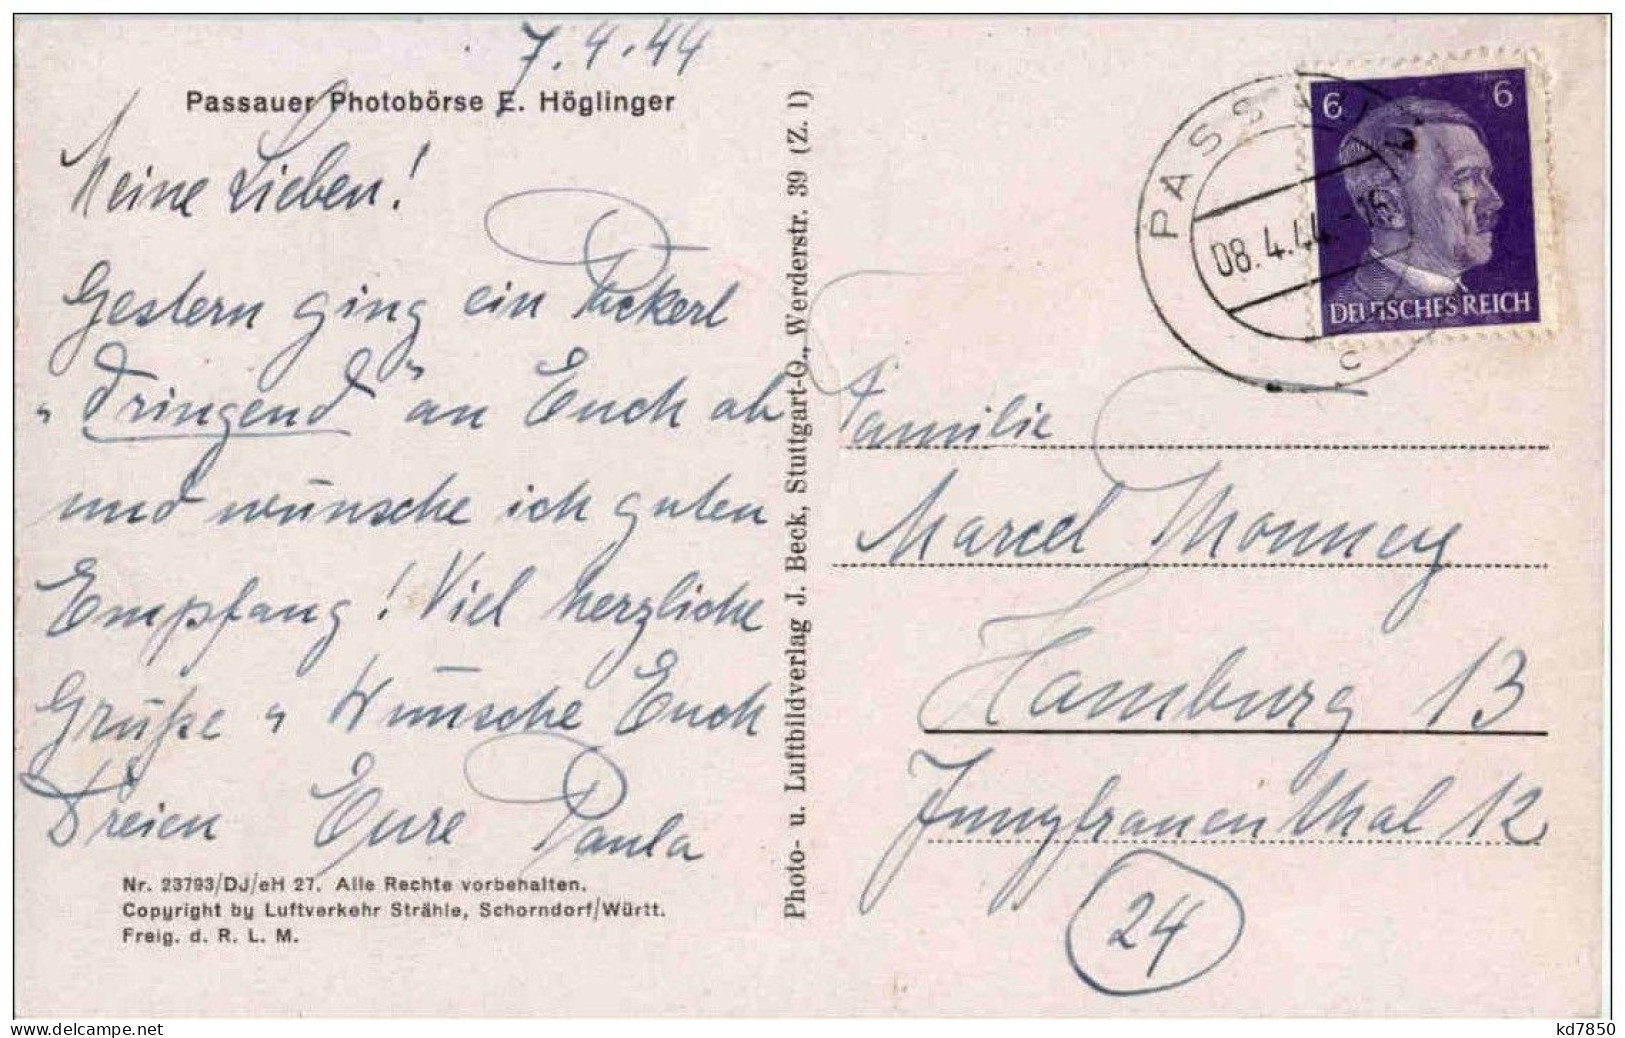 7.4.44
Passauer Photobörse E. Höglinger
Meine Lieben!
Gestern ging ein Packerl
„dringend" an Euch ab
und wünsche ich guten
Empfang! Viel herzliche
Grüße u Wünsche Euch
Dreien Eure Paula
Nr. 23793/DJ/eH 27. Alle Rechte vorbehalten.
Copyright by Luftverkehr Strähle, Schorndorf/Württ.
Freig. d. R. L. M.
Photo- u. Luftbildverlag J. Beck, Stuttgart-O., Werderstr. 39 (Z. 1)
PASSAU
08.4.44.-16
6 6
DEUTSCHES REICH
Familie
Marcel Thonney
Hamburg 13
Jungfrauenthal 12
24
www.delcampe.net
kd7850